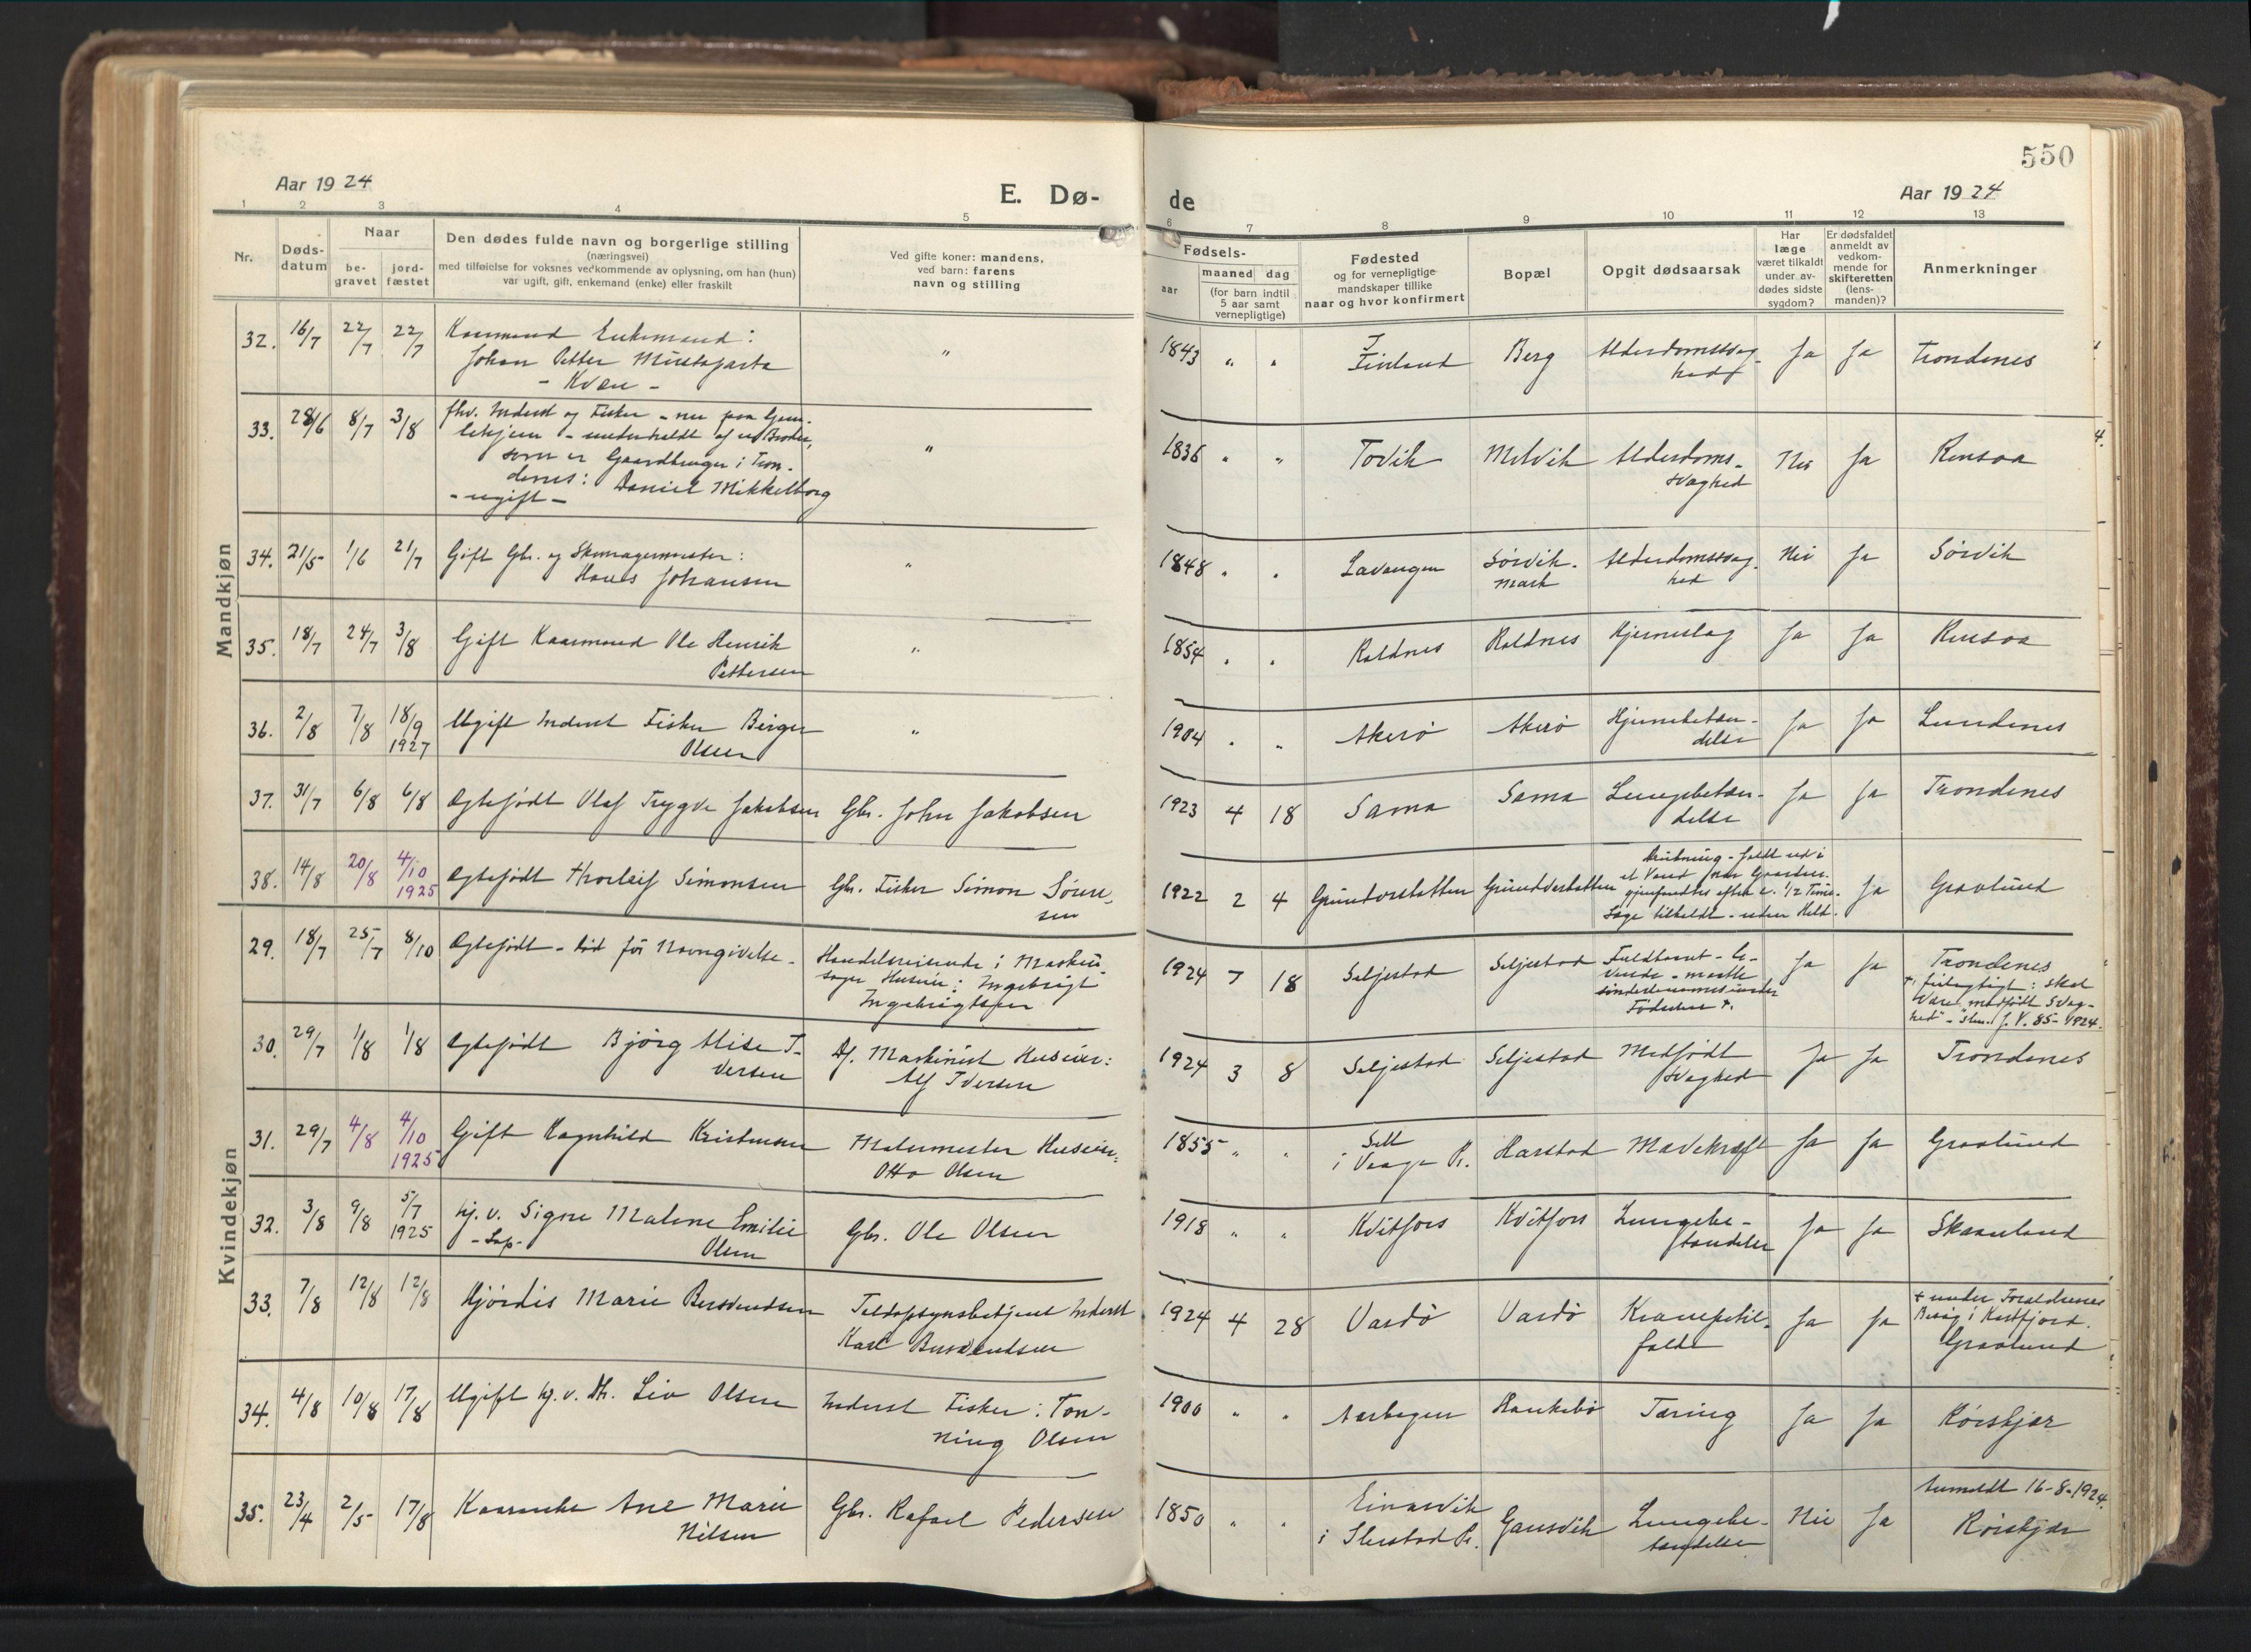 550
Aar 1924
E. Dø-
de
Aar 1924
1 2 3 4 5 6 7 8 9 10 11 12 13
Nr.
Døds-
datum
Naar
be-
gravet
jord-
fæstet
Den dødes fulde navn og borgerlige stilling
(næringsvei)
med tilføielse for voksnes vedkommende av oplysning, om han (hun)
var ugift, gift, enkemand (enke) eller fraskilt
Ved gifte koner: mandens,
ved barn: farens
navn og stilling
Fødsels-
aar
maaned dag
(for barn indtil
5 aar samt
vernepligtige)
Fødested
og for vernepligtige
mandskaper tillike
naar og hvor konfirmert
Bopæl
Opgit dødsaarsak
Har
læge
været tilkaldt
under av-
dødes sidste
sygdom?
Er dødsfaldet
anmeldt av
vedkom-
mende for
skifteretten
(lens-
manden)?
Anmerkninger
Mandkjøn
32. 16/7 22/7 22/7 Kaarmand Enkemand:
Johan Petter
- Kvæn -
" 1843 " " Finland Berg Alderdomssvag-
hed Ja Ja Trondenes
33. 28/6 8/7 3/8 fhv. Inderst og Fisker - nu paa Gam-
lehjem - underholdt af en Broder,
som er Gaardbruger i Tron-
denes: Daniel Mikkelborg
- ugift -
" 1836 " " Tovik Melvik Alderdoms-
svaghed Nei Ja Rensaa
34. 21/5 1/6 21/7 Gift Gbr. og Skomagermester:
Hans Johansen
" 1848 " " Lavangen Sørvik-
mark Alderdomssvag-
hed Nei Ja Sørvik
35. 18/7 24/7 3/8 Gift Kaarmand Ole Henrik
Pettersen
" 1854 " " Roldnes Roldnes Hjerneslag Ja Ja Rensaa
36. 2/8 7/8 18/9 1927 Ugift Inderst Fisker Birger
Olsen
" 1904 " " Akerø Akerø Hjernebetæn-
delse Ja Ja Lundenes
37. 31/7 6/8 6/8 Ægtefødt Olaf Trygve Jakobsen Gbr. John Jakobsen
1923 4 18 Sama Sama Lungebetæn-
delse Ja Ja Trondenes
38. 14/8 20/8 4/10 1925 Ægtefødt Thorleif Simonsen Gbr. Fisker Simon Søren-
sen
1922 2 4 Grundvorstatten Grundvorstatten Drukning - faldt ud i
et Vand nær Gaarden.
gjenfandtes efter c. 1/2 Time.
Læge tilkaldt - uden Held. Ja Gravlund
Kvindekjøn
29. 18/7 25/7 8/10 Ægtefødt - død før Navngivelse - Handelsreisende i Maskin-
sager Huseier: Ingebrigt
Ingebrigtsen
1924 7 18 Seljestad Seljestad Fuldbaaret - le-
vende - maatte
sønderlemmes under
Fødselen +. Ja Ja Trondenes
+ feilagtigt: skal
være "medfødt Svag-
hed" - J. V. 85 - 1924.
30. 29/7 1/8 1/8 Ægtefødt Bjørg Alise I-
versen Af. Maskinist Huseier:
Alf Iversen
1924 3 8 Seljestad Seljestad Medfødt
Svaghed Ja Ja Trondenes
31. 29/7 4/8 4/10 1925 Gift Ragnhild Malermester Huseier:
Otto Olsen
1855 " " Sell
i Vaage Pr. Harstad Mavekræft Ja Ja Gravlund
32. 3/8 9/8 5/7 1925 hj. v. Signe Malene Emilie
- Lap - Olsen Gbr. Ole Olsen
1918 " " Kvitfors Kvitfors Lungebe-
tændelse Ja Ja Skaanland
33. 7/8 12/8 12/8 Hjørdis Marie Bersvendsen Toldopsynsbetjent Inderst
Karl Bersvendsen
1924 4 28 Vardø Vardø Krampetil-
fælde Ja Ja + under Forældrenes
Besøg i Kastfjord.
Gravlund
34. 4/8 10/8 17/8 Ugift hj. v. Dtr. Liv Olsen Inderst Fisker: Tøn-
ning Olsen
1900 " " Aarbogen Tæring Ja Ja Røkskjær
35. 23/4 2/5 17/8 Kaarenke Ane Marie
Nilsen Gbr. Rafael Pedersen
1850 " " Einarvik
i Pr. Gausvik Lungebe-
tændelse Nei Ja Anmeldt 16-8-1924.
Røkskjær